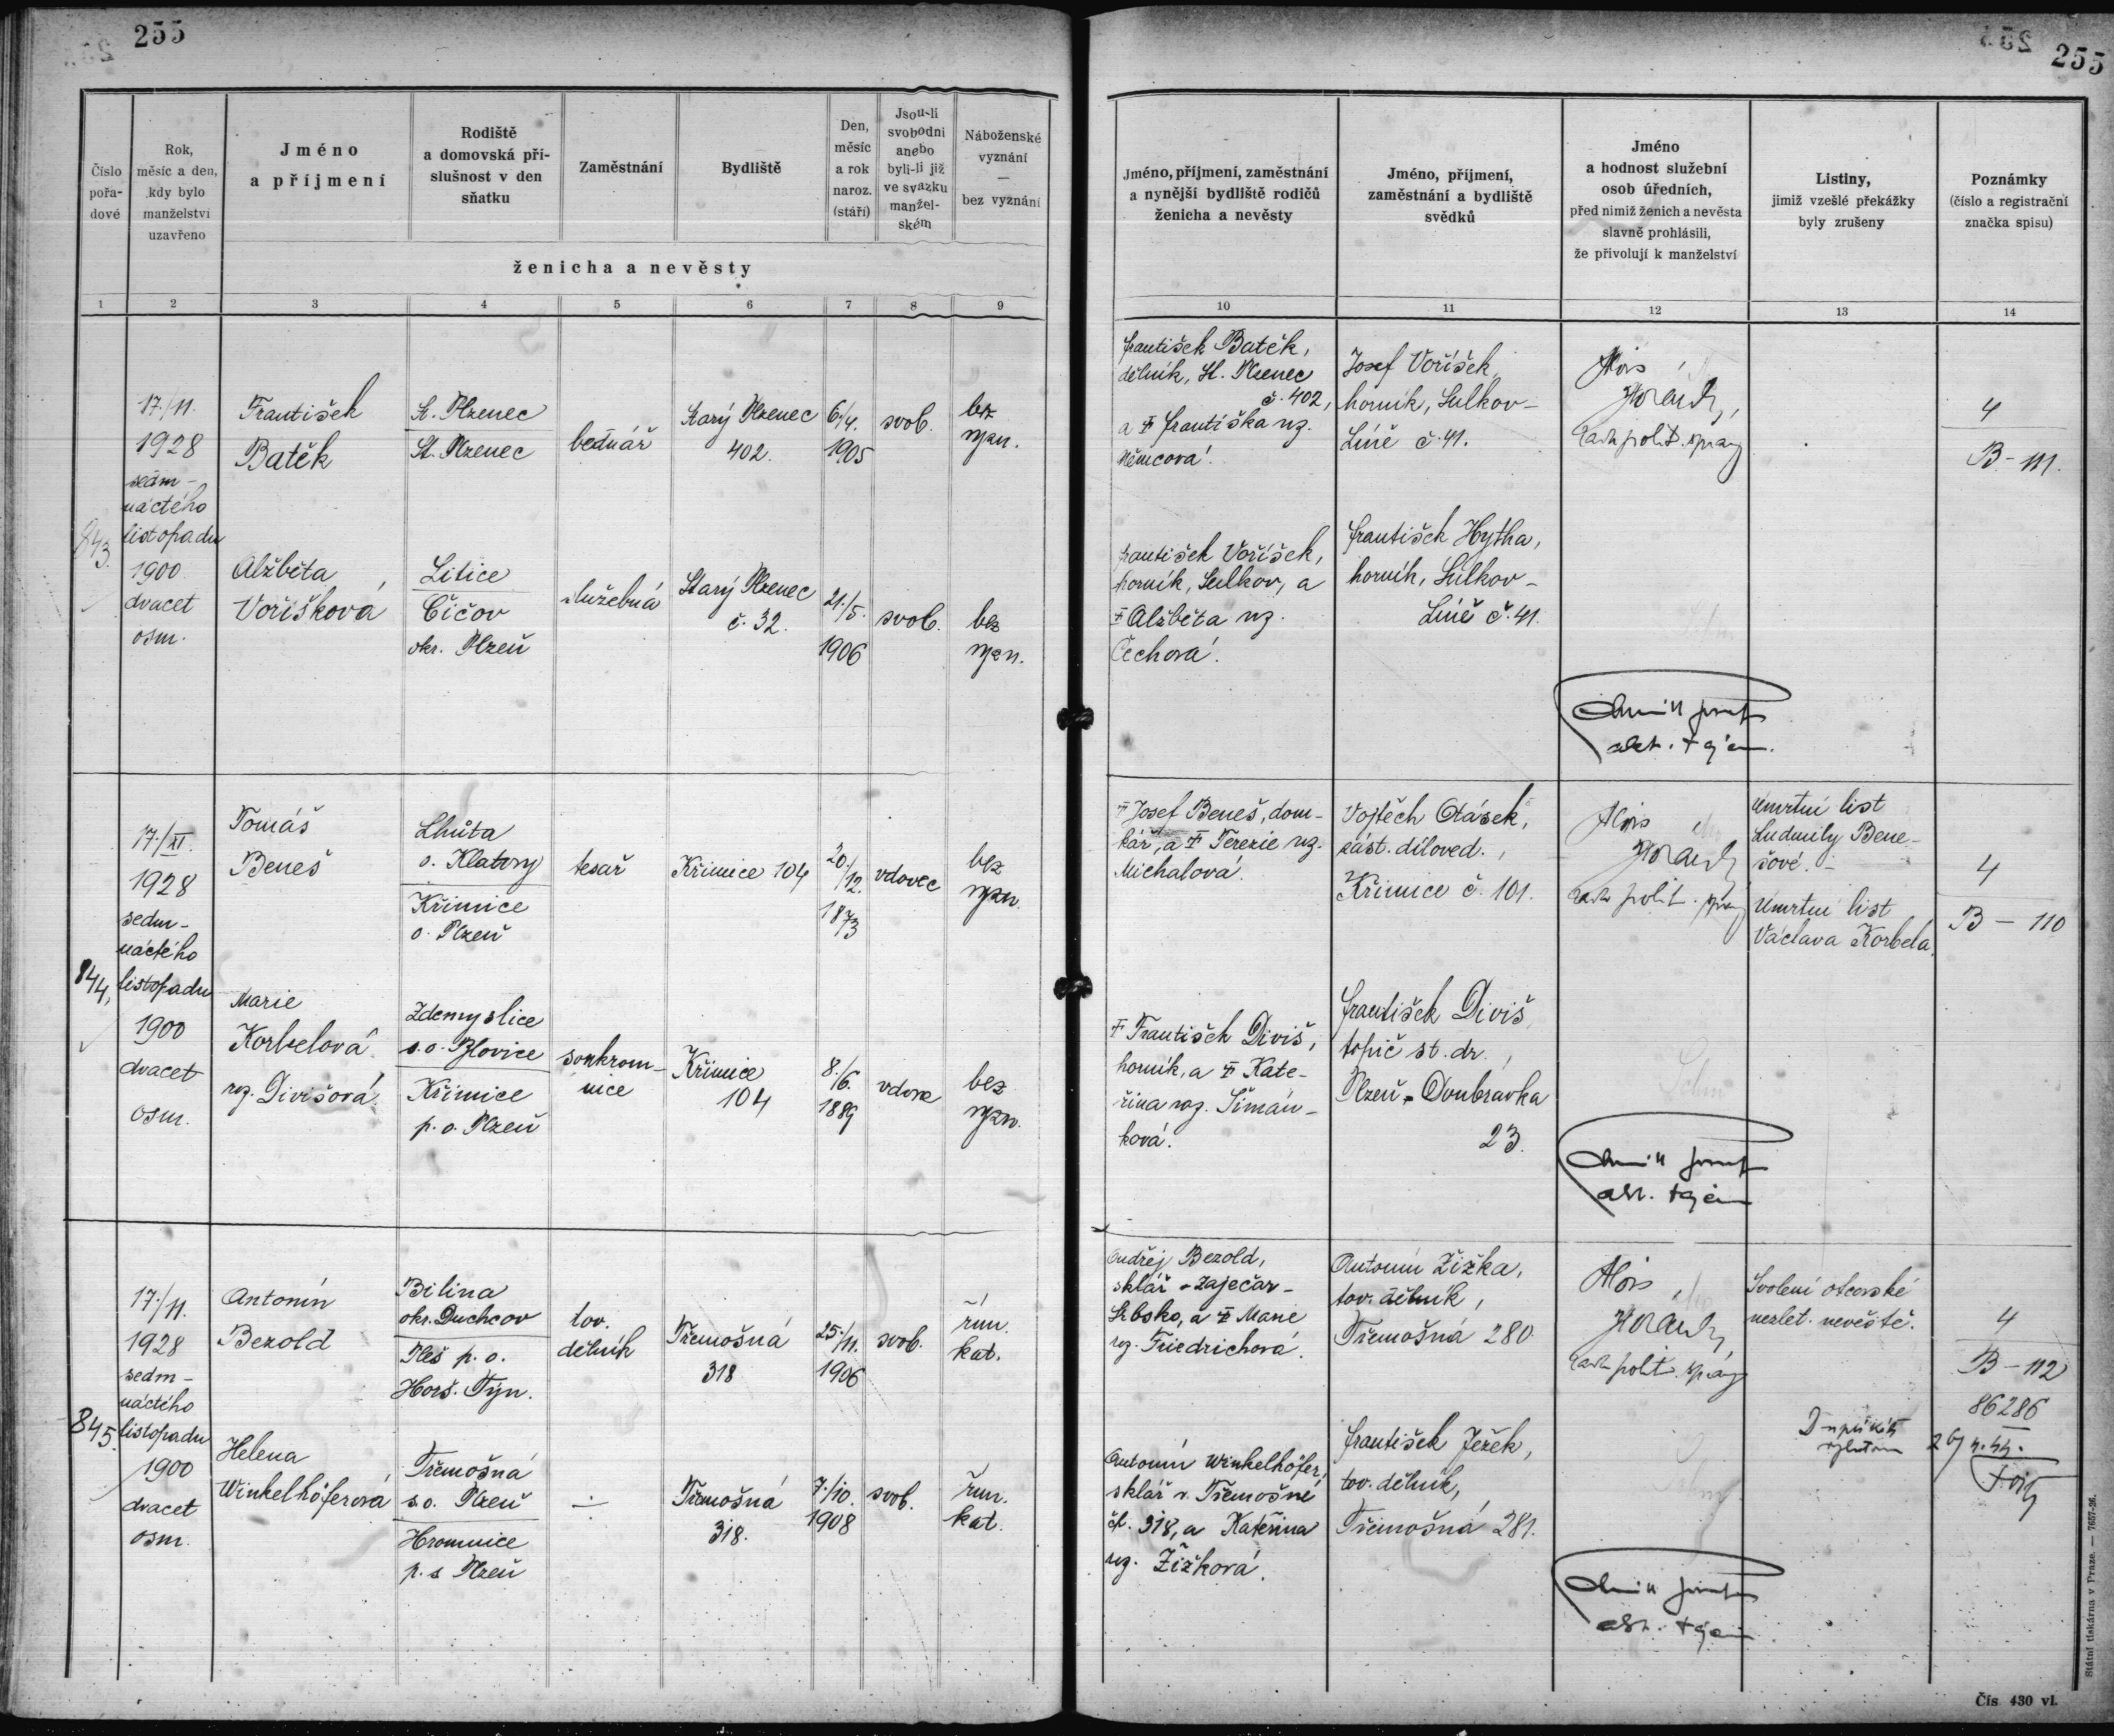 255
255
Číslo pořa- dové
Rok, měsíc a den, kdy bylo manželství uzavřeno
Jméno a příjmení
Rodiště a domovská pří- slušnost v den sňatku
Zaměstnání
Bydliště
Den, měsíc a rok naroz. (stáří)
Jsou-li svobodni anebo byli-li již ve svazku manžel- ském
Náboženské vyznání — bez vyznání
ženicha a nevěsty
Jméno, příjmení, zaměstnání a nynější bydliště rodičů ženicha a nevěsty
Jméno, příjmení, zaměstnání a bydliště svědků
Jméno a hodnost služební osob úředních, před nimiž ženich a nevěsta slavně prohlásili, že přivolují k manželství
Listiny, jimiž vzešlé překážky byly zrušeny
Poznámky (číslo a registrační značka spisu)
1 2 3 4 5 6 7 8 9 10 11 12 13 14
843.
17./11.
1928
sedm-
náctého
listopadu
1900
dvacet
osm.
František
Batěk
St. Plzenec
St. Plzenec
bednář
Starý Plzenec
402.
6./4.
1905
svob.
bez
vyzn.
František Batěk,
dělník, St. Plzenec
č. 402,
a † Františka roz.
Němcová.
Josef Voříšek,
horník, Sulkov-
Líně č. 41.
Alois
polit. správy
4
B - 111.
Alžběta
Voříšková
Litice
Čičov
okr. Plzeň
služebná
Starý Plzenec
č. 32.
21./5.
1906
svob.
bez
vyzn.
František Voříšek,
horník, Sulkov, a
† Alžběta roz.
Čechová.
František Hytha,
horník, Sulkov-
Líně č. 41.
844.
17./XI.
1928
sedm-
náctého
listopadu
1900
dvacet
osm.
Tomáš
Beneš
Lhůta
o. Klatovy
Křimice
o. Plzeň
tesař
Křimice 104
20./12.
1873
vdovec
bez
vyzn.
† Josef Beneš, dom-
kář, a † Terezie roz.
Michalová.
Vojtěch Otásek,
zást. díloved.,
Křimice č. 101.
Alois
polit. správy
Úmrtní list
Ludmily Bene-
šové. -
Úmrtní list
Václava Korbela.
4
B - 110
Marie
Korbelová
roz. Divišová.
Zdemyslice
s. o. Blovice
Křimice
p. o. Plzeň
soukrom-
nice
Křimice
104
8./6.
1889
vdova
bez
vyzn.
† František Diviš,
horník, a † Kate-
řina roz. Šimán-
ková.
František Diviš,
topič st. dr.,
Plzeň-Doubravka
23.
845.
17./11.
1928
sedm-
náctého
listopadu
1900
dvacet
osm.
Antonín
Bezold
Bilina
okr. Duchcov
Pleš p. o.
Horš. Týn.
tov.
dělník
Třemošná
318
25./11.
1906
svob.
řím.
kat.
Ondřej Bezold,
sklář - Zaječar-
Srbsko, a † Marie
roz. Friedrichová.
Antonín Žižka,
tov. dělník,
Třemošná 280.
Alois
polit. správy
Svolení otcovské
nezlet. nevěstě.
4
B - 112
86286
Helena
Winkelhöferová
Třemošná
s. o. Plzeň
Hromnice
p. s. Plzeň
—
Třemošná
318.
7./10.
1908
svob.
řím.
kat.
Antonín Winkelhöfer,
sklář v Třemošné
čp. 318, a Kateřina
roz. Žižková.
František Ježek,
tov. dělník,
Třemošná 281.
Státní tiskárna v Praze. — 7657-26.
Čís. 430 vl.